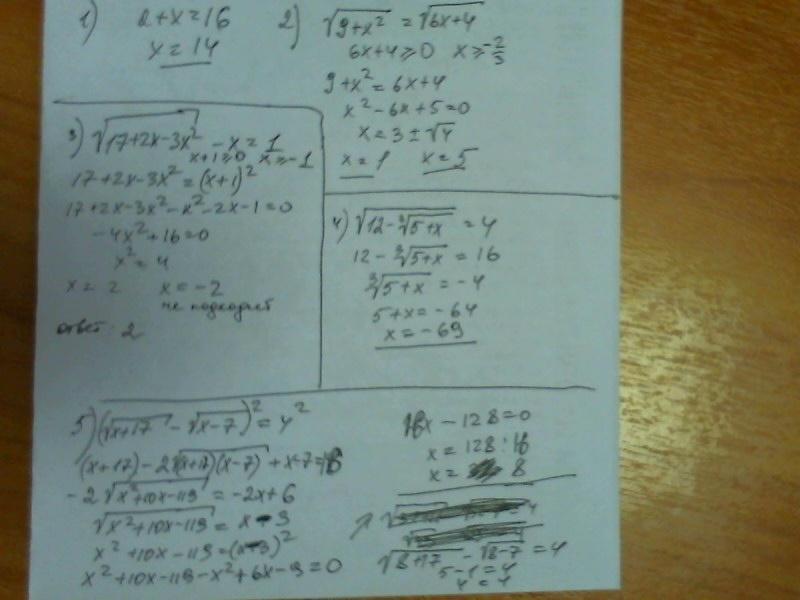 1) 2+x=16
x=14
2) √(9+x²) = √(6x+4)
6x+4≥0 x≥-2/3
9+x²=6x+4
x²-6x+5=0
x=3±√4
x=1 x=5
3) √(17+2x-3x²) -x=1
x+1≥0 x≥-1
17+2x-3x²=(x+1)²
17+2x-3x²-x²-2x-1=0
-4x²+16=0
x²=4
x=2 x=-2
не подходит
ответ: 2
4) √(12-∛(5+x)) =4
12-∛(5+x) =16
∛(5+x) =-4
5+x=-64
x=-69
5) (√(x+17) -√(x-7))²=4²
(x+17)-2√((x+17)(x-7)) +x-7=16
-2√(x²+10x-119) =-2x+6
√(x²+10x-119) = x-3
x²+10x-119=(x-3)²
x²+10x-119-x²+6x-9=0
16x-128=0
x=128:16
x= 8
√(8+17) -√(8-7) =4
5-1=4
4=4